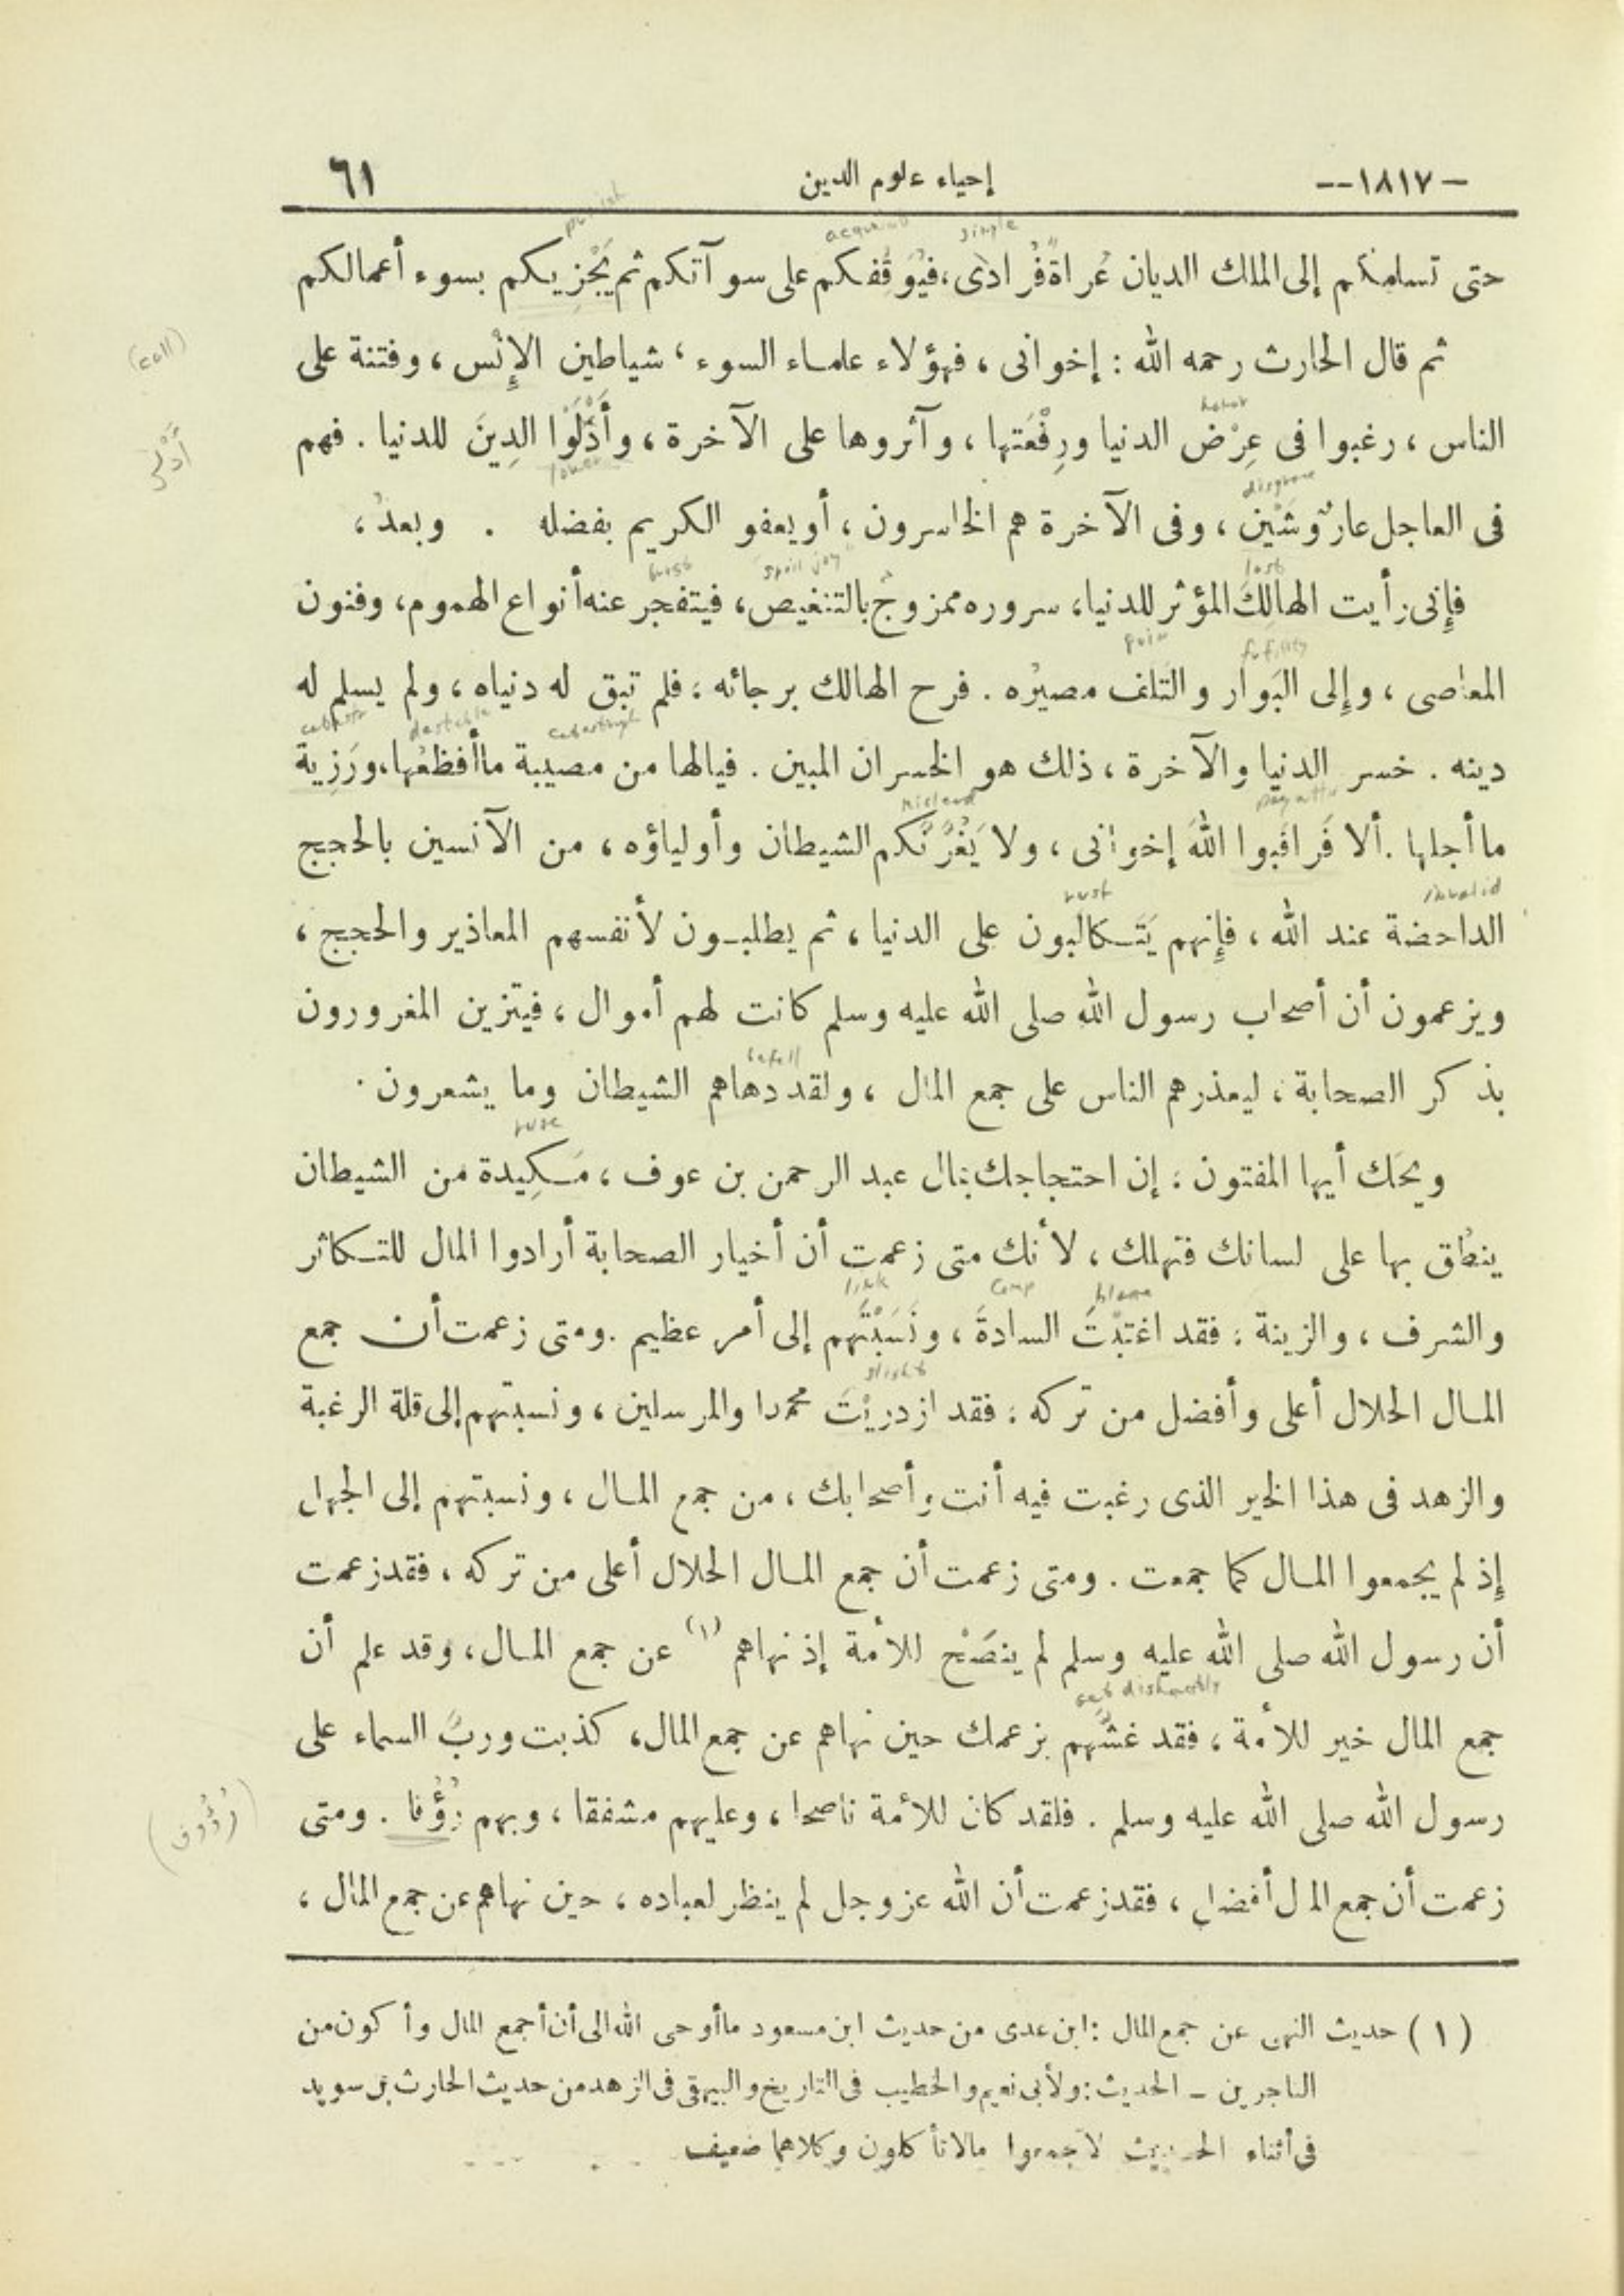 -١٨١٧-- إحياء علوم الدين ٦١
punish single
حتى تسلمكم إلى الملك الديان عُراةً فُرادَى، فيُوَقِّفكم على سوآتكم ثم يَجْزِيكم بسوء أعمالكم
(call)
ثم قال الحارث رحمه الله : إخوانى ، فهؤلاء علماء السوء ، شياطين الإِنْس ، وفتنة على
honor
الناس ، رغبوا فى عِرْض الدنيا ورِفْعَتها ، وآثروها على الآخرة ، وأَذَلُّوا الدِينَ للدنيا . فهم
lower
disgrace
فى العاجل عارٌ وشَيْن ، وفى الآخرة هم الخاسرون ، أو يعفو الكريم بفضله . وبعدُ ،
lost spoil joy burst
فإِنى رأيت الهالِكَ المؤثر للدنيا، سروره ممزوجٌ بالتنغيص، فيتفجر عنه أنواع الهموم، وفنون
futility
المعاصى ، وإِلى البَوار والتَلف مصيرُه . فرح الهالك برجائه ، فلم تبق له دنياه ، ولم يسلم له
دينه . خسر الدنيا والآخرة ، ذلك هو الخسران المبين . فيالها من مصيبة ما أفظعُها، ورَزِية
mislead
ما أجلها . ألا فَراقَبوا اللهَ إخوانى ، ولا يَغُرَّنَّكم الشيطان وأولياؤه ، من الآنسين بالحجج
invalid
الداحضة عند الله ، فإِنهم يَتَكالَبون على الدنيا ، ثم يطلبون لأنفسهم المعاذير والحجج ،
ويزعمون أن أصحاب رسول الله صلى الله عليه وسلم كانت لهم أموال ، فيتزين المغرورون
befell
بذكر الصحابة ، ليعذرهم الناس على جمع المال ، ولقد دهاهم الشيطان وما يشعرون .
ruse
ويحَك أيها المفتون ، إن احتجاجك بمال عبد الرحمن بن عوف ، مَكِيدة من الشيطان
ينطُق بها على لسانك فتهلك ، لأنك متى زعمت أن أخيار الصحابة أرادوا المال للتكاثر
blame link
والشرف ، والزينة ، فقد اغتبْتَ السادةَ ، ونَسَبْتَهم إلى أمر عظيم . ومتى زعمت أن جمع
slight
المال الحلال أعلى وأفضل من تركه ، فقد ازدريْتَ محمدا والمرسلين ، ونسبتهم إلى قلة الرغبة
والزهد فى هذا الخير الذى رغبت فيه أنت وأصحابك ، من جمع المال ، ونسبتهم إلى الجهل
إِذ لم يجمعوا المال كما جمعت . ومتى زعمت أن جمع المال الحلال أعلى من تركه ، فقد زعمت
أن رسول الله صلى الله عليه وسلم لم ينصَحْ للأمة إذ نهاهم (١) عن جمع المال، وقد علم أن
act dishonestly
جمع المال خير للأمة ، فقد غشَّهم بزعمك حين نهاهم عن جمع المال، كذبت وربِّ السماء على
(رُؤُوف)
رسول الله صلى الله عليه وسلم . فلقد كان للأمة ناصحا ، وعليهم مشفقا ، وبهم رُؤُفا . ومتى
زعمت أن جمع المال أفضل ، فقد زعمت أن الله عز وجل لم ينظر لعباده ، حين نهاهم عن جمع المال ،
( ١ ) حديث النهى عن جمع المال : ابن عدى من حديث ابن مسعود ما أوحى الله الى أن أجمع المال وأكون من
التاجرين - الحديث : ولأبى نعيم والخطيب فى التاريخ والبيهقى فى الزهد من حديث الحارث بن سويد
فى أثناء الحديث لا تجمعوا مالا تأكلون وكلاهما ضعيف